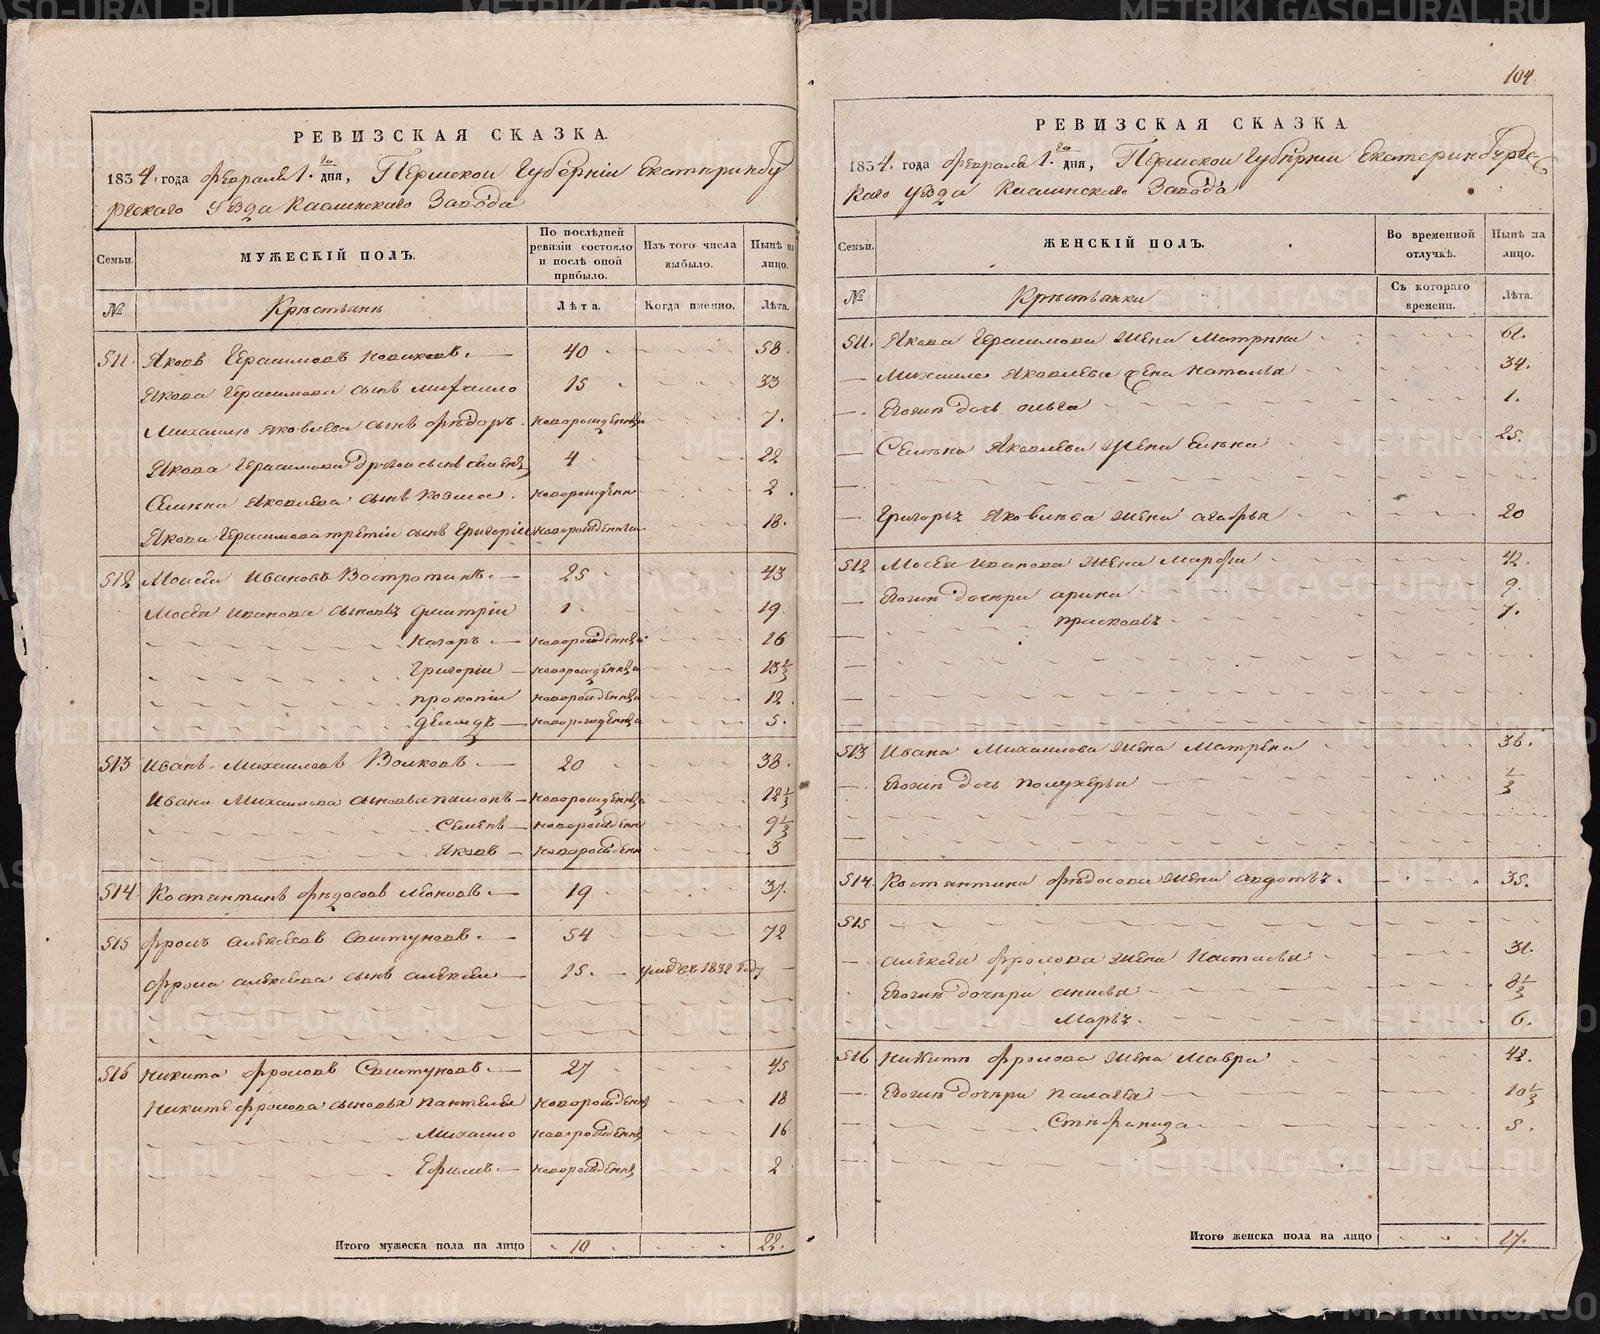 РЕВИЗСКАЯ СКАЗКА.
1834. года февраля 1. го дня, Пермской Губернiи Екатеринбу
ргскаго уезда Каслинскаго Завода
Семьи.
МУЖЕСКIЙ ПОЛЪ.
По послѣдней ревизiи состояло и послѣ оной прибыло.
Изъ того числа выбыло.
Нынѣ на лицо.
№
Крестьяне
Лѣта.
Когда именно.
Лѣта.
511. Яковъ Герасимовъ Новиковъ. 40 58.
Якова Герасимова сынъ Михаило 15 33
Михаила Яковлева сынъ Федоръ. новорожденны 7.
Якова Герасимова другой сынъ Семенъ 4 22
Семена Яковлева сынъ Козма. новорожденн 2.
Якова Герасимова третiи сынъ Григорiи новорожденны 18.
512 Моисеи Ивановъ Востротинъ. 25 43
Мосея Иванова сыновья Дмитрiи 1. 19.
Назаръ. новорожденны 16
Григорiи новорожденны 13 1/2
Прокопiи новорожденны 12.
Демидъ новорожденны 5.
513 Иванъ Михаиловъ Волковъ. 20 38.
Ивана Михаилова сыновья Пимонъ новорожденны 12 1/2
Семенъ новорожденн 9 1/2
Яковъ новорожденн 3
514 Костентинъ Федосовъ Леоновъ. 19 37.
515 Фролъ Алексеевъ Свистуновъ. 54 72
Фрола Алексеева сынъ Алексеи 15. умре въ 1832 году
516 Никита Фроловъ Свистуновъ. 27 45
Никиты Фролова сыновья Пантелеи новорожденн 18
Михаило новорожденн 16
Ефимъ новорожденн 2
Итого мужеска пола на лицо 10 22.
104.
РЕВИЗСКАЯ СКАЗКА
1834. года февраля 1. го дня, Пермской Губернiи Екатеринбургс
каго уезда Каслинскаго Завода
Семьи.
ЖЕНСКIЙ ПОЛЪ.
Во временной отлучкѣ.
Нынѣ на лицо.
№
Крестьянки
Съ котораго времени.
Лѣта.
511. Якова Герасимова жена Матрина 61.
Михаила Яковлева жена Наталья 34.
Егогие дочь Ольга 1.
Семена Яковлева жена Елена 25.
Григорья Яковлева жена Агафья 20
512 Мосея Иванова жена Марфа 42.
Егогие дочери Арина 9.
Прасковья 7.
513 Ивана Михаилова жена Матрена 36.
Егогие дочь Полухерья 1/2
514. Костентина Федосова жена Авдотья. 35.
515
Алексея Фролова жена Настасья 31.
Егогие дочери Анисья 8 1/2
Марья. 6.
516 Никиты Фролова жена Мавра 42.
Егогие дочери Палагея 10 1/2
Стефанида 5.
Итого женска пола на лицо 17.
METRIKI.GASO-URAL.RU